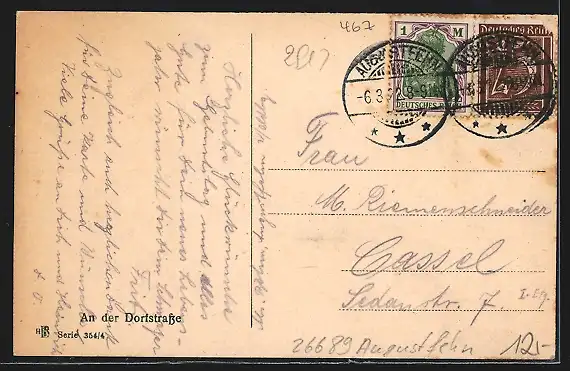 467
1 M
DEUTSCHES REICH
Deutsches Reich
AUGUSTFEHN
-6.3.
8-9
Herzliche Glückwünsche
zum Geburtstag und alles
Gute für dein neues Lebens-
jahr wünscht dir dein Schwager
Fritz
Zugleich auch herzlichen Dank
für deine Karte und
Viele Grüße an dich und Heinrich
d. O.
Frau
M. Riemenschneider
Cassel
Sedanstr. 7.
An der Dorfstraße
Serie 354/4
26689 Augustfehn
12,-